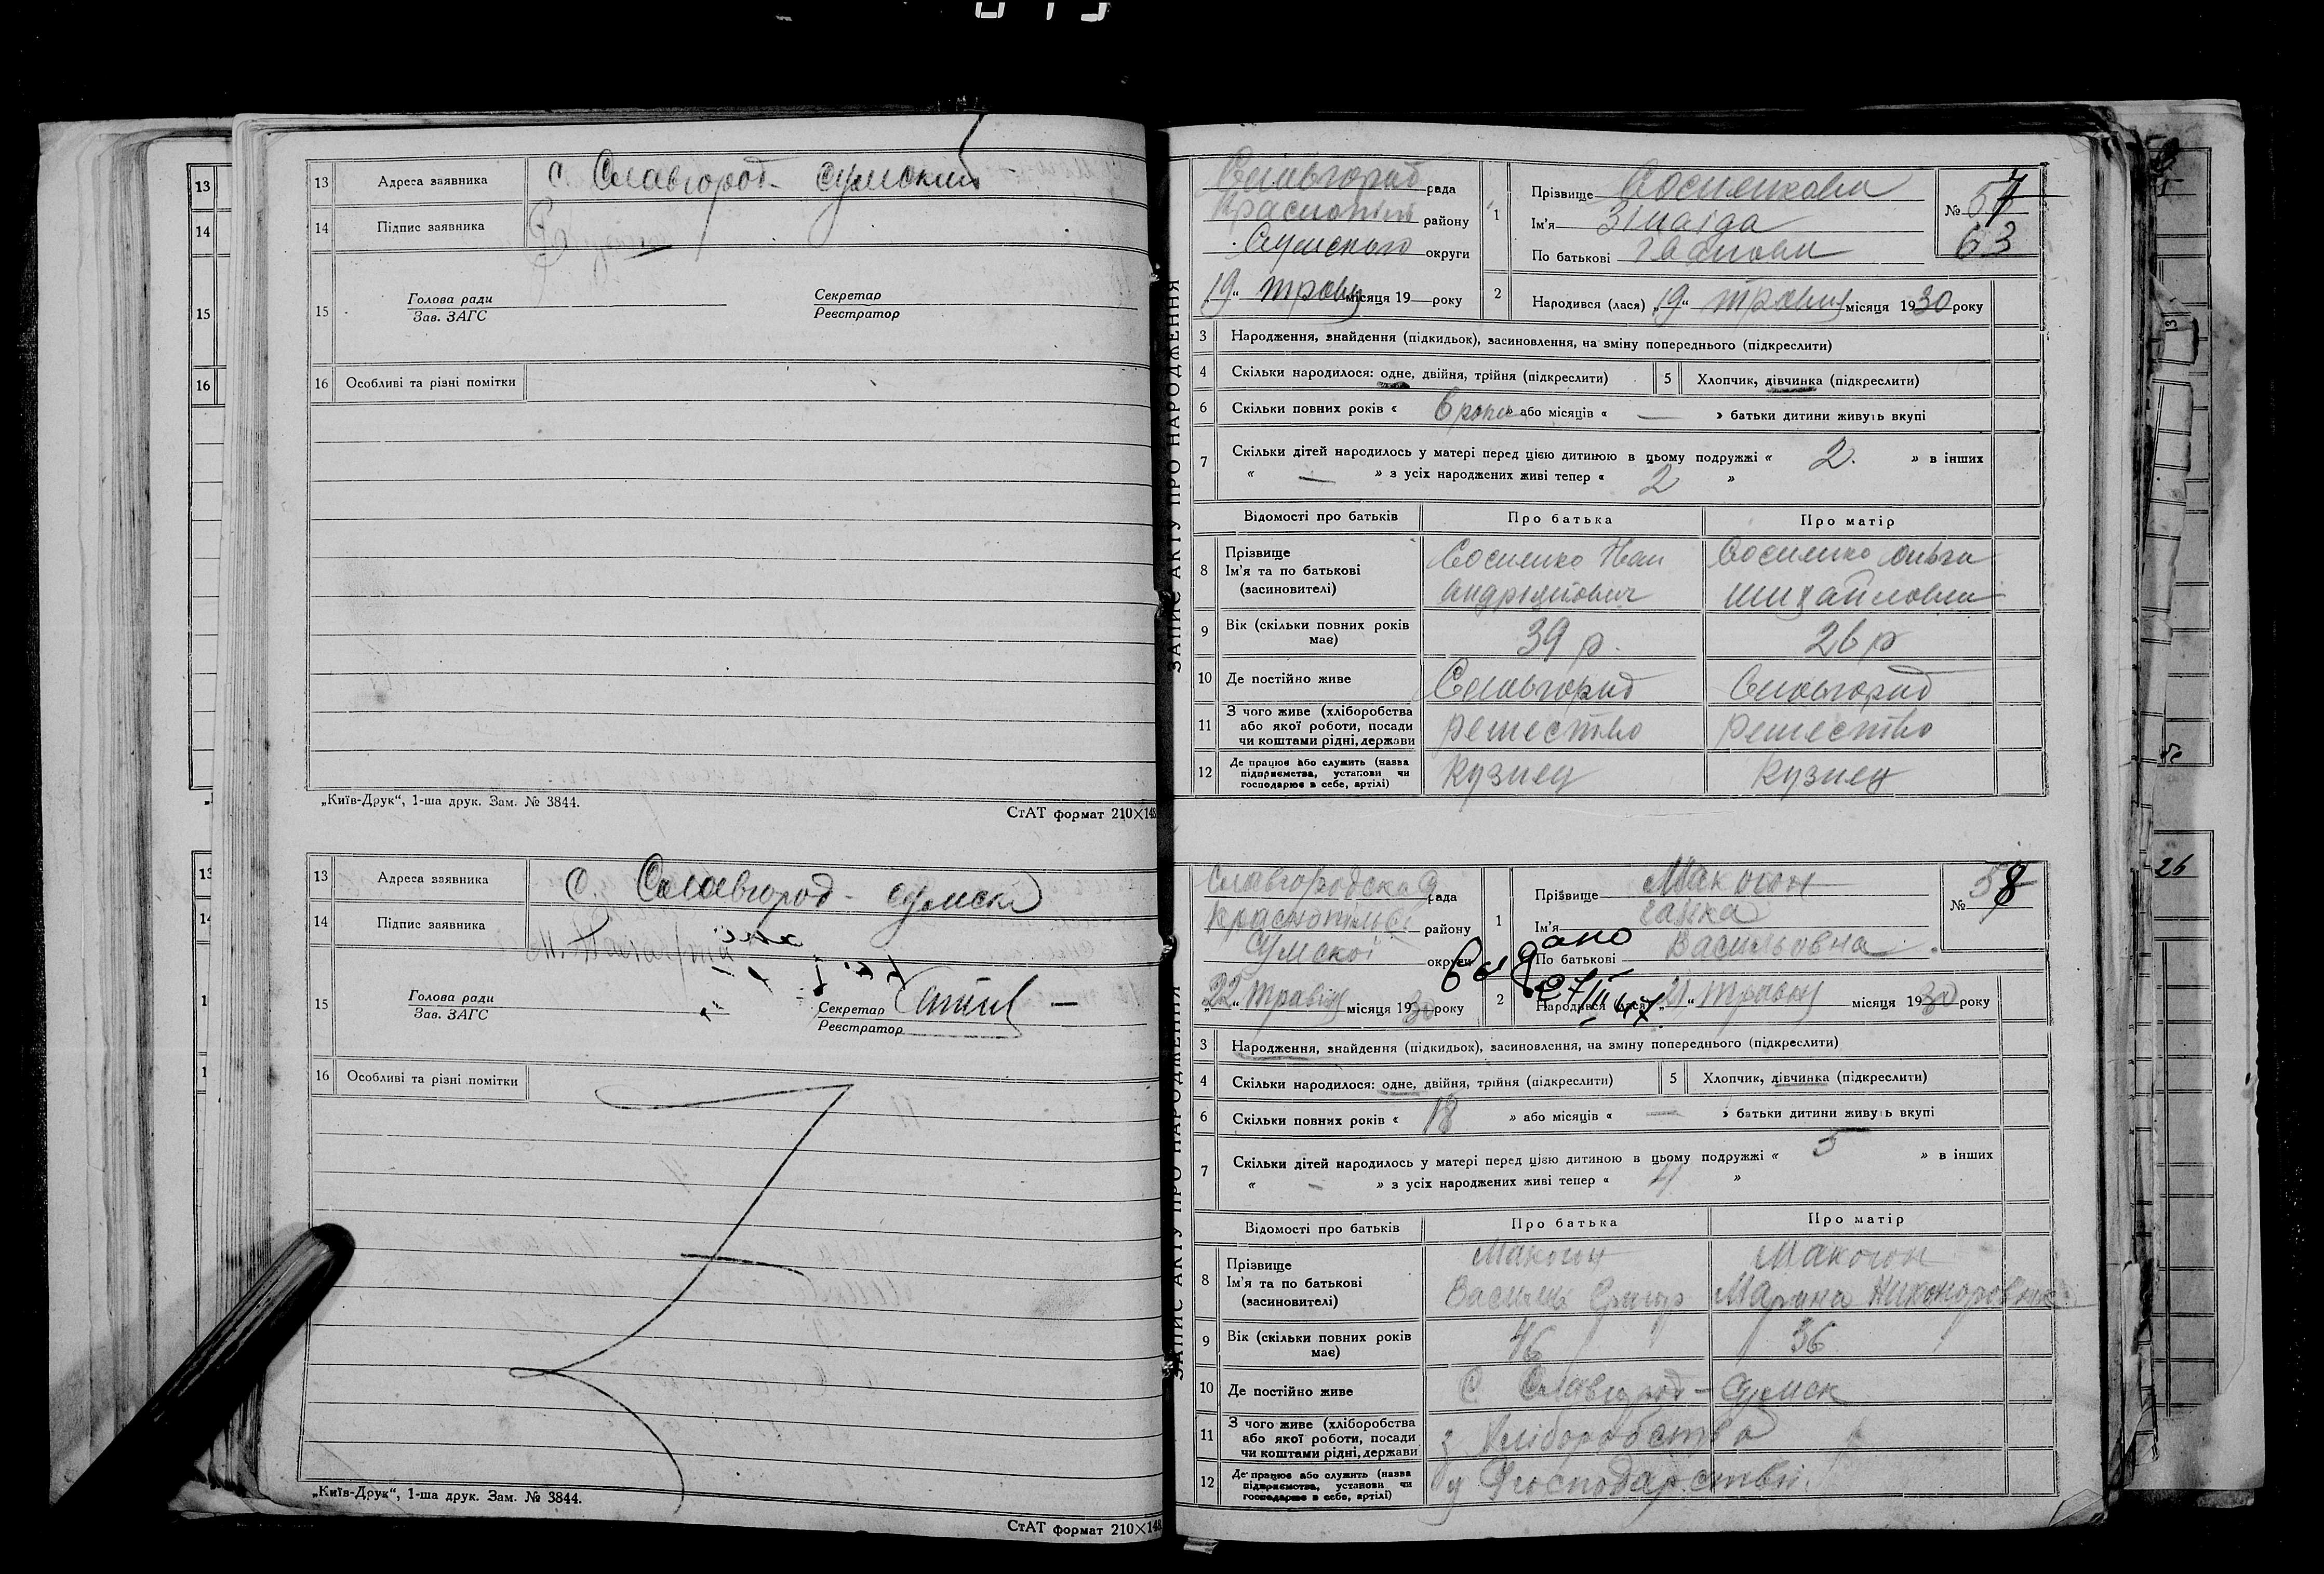 13 Адреса заявника С. Славгород сумский
14 Підпис заявника
15 Голова ради Секретар
Зав. ЗАГС Реєстратор
16 Особливі та різні помітки
„Київ-Друк“, 1-ша друк. Зам. № 3844.
СтАТ формат 210×148
13 Адреса заявника С. Славгород - сумск
14 Підпис заявника
15 Голова ради Секретар
Зав. ЗАГС Реєстратор
16 Особливі та різні помітки
„Київ-Друк“, 1-ша друк. Зам. № 3844.
СтАТ формат 210×148
ЗАПИС АКТУ ПРО НАРОДЖЕННЯ
Славгород рада
Краснопіль району
Сумського округи
„19“ травня місяця 19 року
1 Прізвище
Ім'я Зінаіда
По батькові Івановна
№ 57
63
2 Народився (лася) „19“ травня місяця 1930 року
3 Народження, знайдення (підкидьок), засиновлення, на зміну попереднього (підкреслити)
4 Скільки народилося: одне, двійня, трійня (підкреслити) 5 Хлопчик, дівчинка (підкреслити)
6 Скільки повних років « 6 роки » або місяців « — » батьки дитини живуть вкупі
7 Скільки дітей народилось у матері перед цією дитиною в цьому подружжі « 2. » в інших
« — » з усіх народжених живі тепер « 2 »
Відомості про батьків Про батька Про матір
8 Прізвище
Ім'я та по батькові
(засиновителі)
Сосненко Іван
Андрійович
Сосненко Ольга
Михайловна
9 Вік (скільки повних років має) 39 р. 26 р
10 Де постійно живе Славгород Славгород
11 З чого живе (хліборобства
або якої роботи, посади
чи коштами рідні, держави
ремество ремество
12 Де працює або служить (назва
підприємства, установи чи
господарює в себе, артілі)
кузнец кузнец
ЗАПИС АКТУ ПРО НАРОДЖЕННЯ
Славгородска рада
Краснопільск району
Сумскоі округи
„22“ травня місяця 1930 року
1 Прізвище Макогон
Ім'я Ганка
По батькові Васильовна
№ 58
видано
27/III 47
2 Народився (лася) „21“ травня місяця 1930 року
3 Народження, знайдення (підкидьок), засиновлення, на зміну попереднього (підкреслити)
4 Скільки народилося: одне, двійня, трійня (підкреслити) 5 Хлопчик, дівчинка (підкреслити)
6 Скільки повних років « 18 » або місяців « — » батьки дитини живуть вкупі
7 Скільки дітей народилось у матері перед цією дитиною в цьому подружжі « 5 » в інших
« — » з усіх народжених живі тепер « 4 »
Відомості про батьків Про батька Про матір
8 Прізвище
Ім'я та по батькові
(засиновителі)
Макогон
Василь Григор
Макогон
Марина Никоноровна
9 Вік (скільки повних років має) 46 36
10 Де постійно живе С. Славгород - Сумск
11 З чого живе (хліборобства
або якої роботи, посади
чи коштами рідні, держави
з хліборобства
12 Де працює або служить (назва
підприємства, установи чи
господарює в себе, артілі)
у господарстві
13
14
15
16
13
14
26